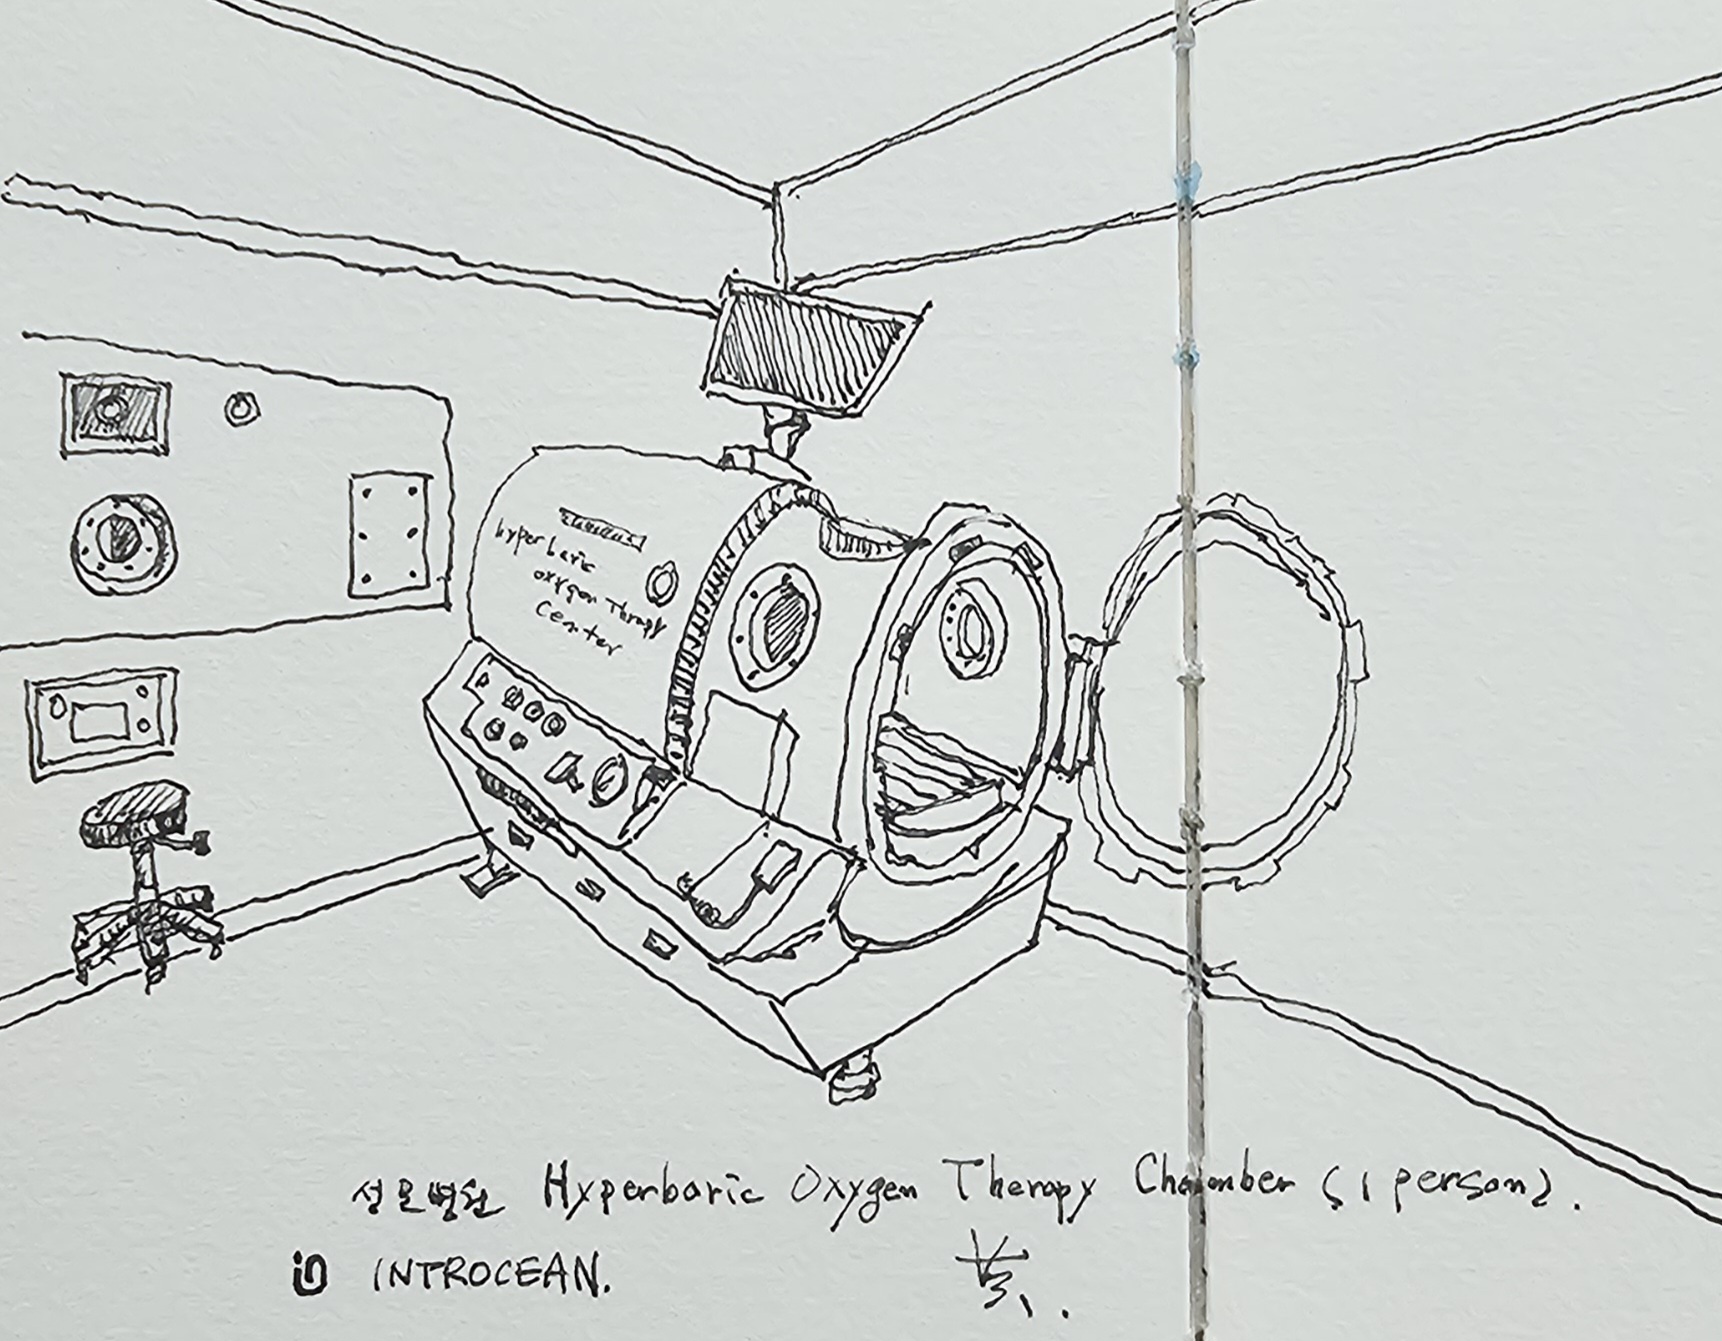 hyperbaric
oxygen Therapy
Center
성모병원 Hyperbaric Oxygen Therapy Chamber (1 person).
INTROCEAN.